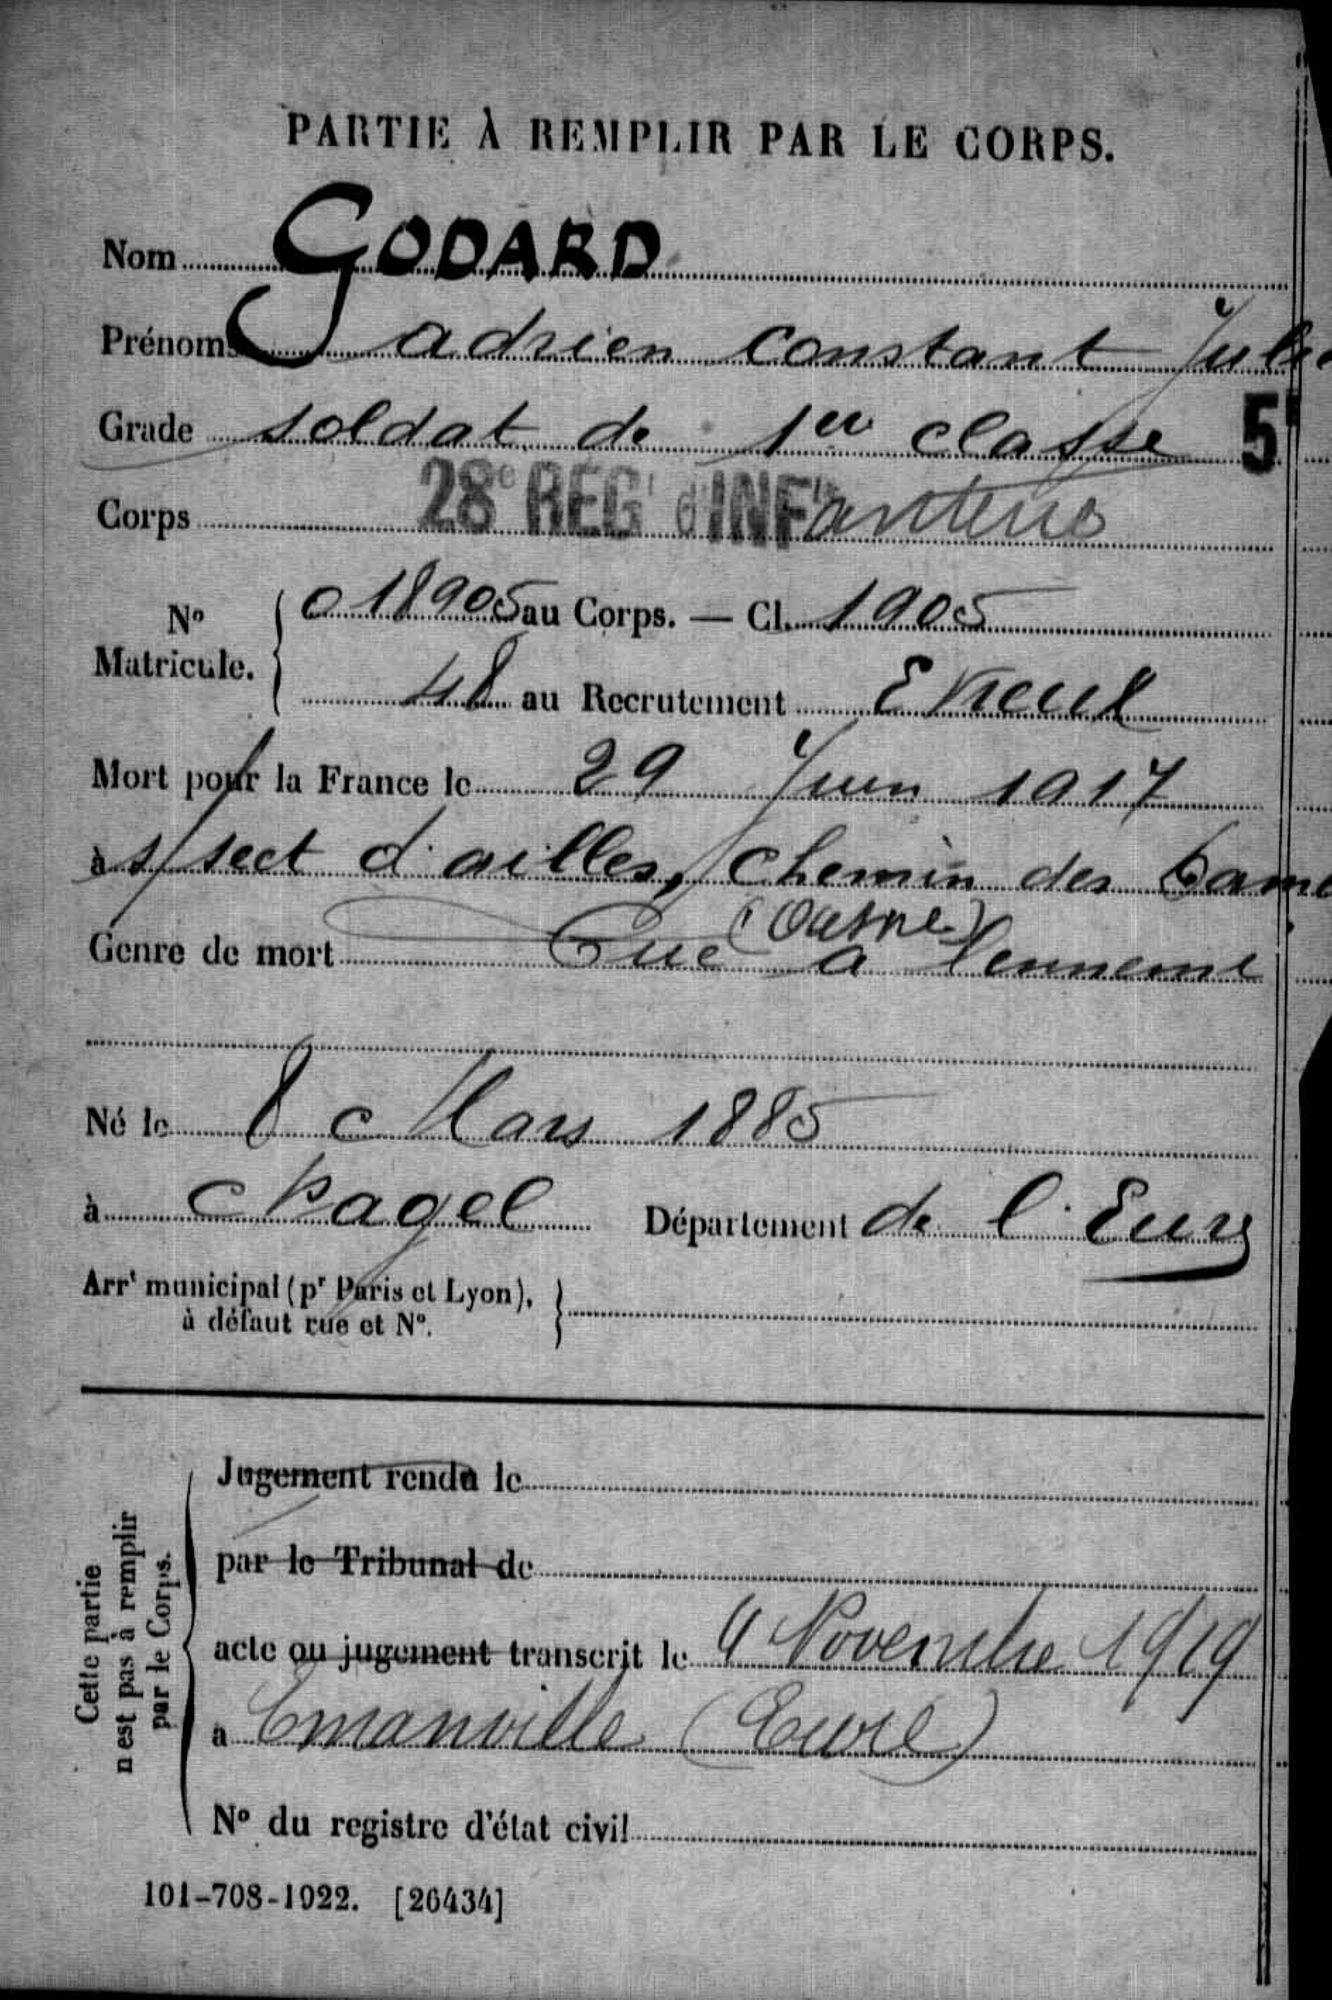 PARTIE À REMPLIR PAR LE CORPS.
Nom GODARD
Prénoms adrien Constant Jule
Grade soldat de 1ere classe 5
Corps 28e REGt d'INFanterie
No Matricule. 018905 au Corps. — Cl. 1905
48 au Recrutement
Mort pour la France le 29 Juin 1917
à s/sect d'ailles, Chemin des Dame
(Aisne)
Genre de mort Tué à l'ennemi
Né le 8 Mars 1885
à Département de l'Eure
Arrt municipal (pr Paris et Lyon),
à défaut rue et No.
Cette partie
n'est pas à remplir
par le Corps.
Jugement rendu le
par le Tribunal de
acte ou jugement transcrit le 4 Novembre 1919
a Emanville (Eure)
No du registre d'état civil
101-708-1922. [26434]